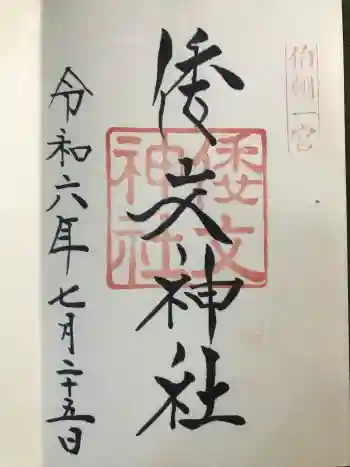 伯州一宮
倭文神社
倭文
神社
令和六年七月二十五日